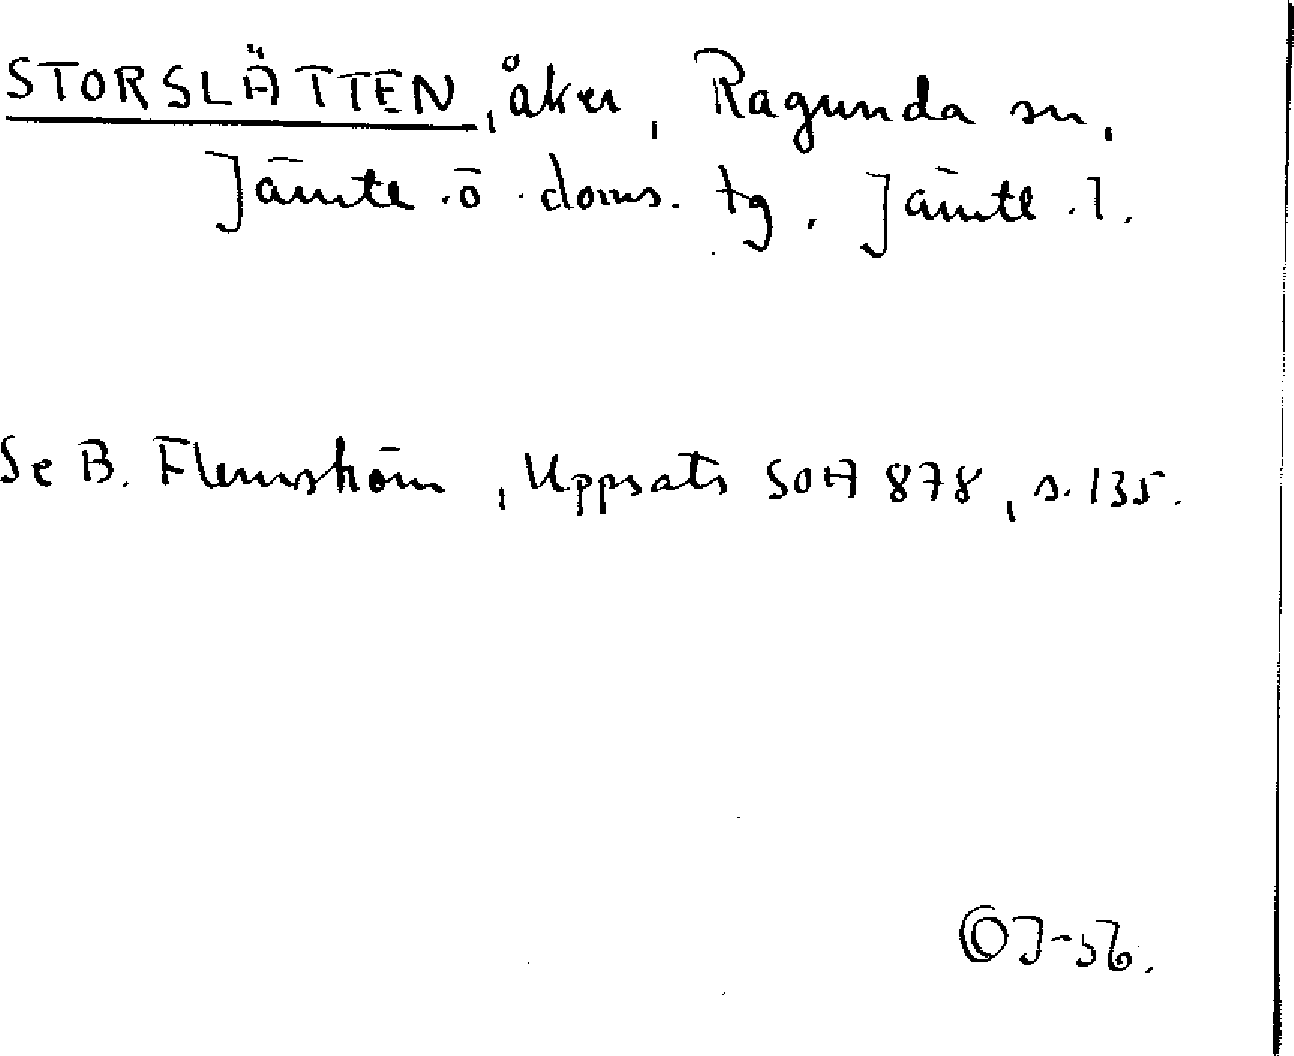 STORSLÄTTEN, åker, Ragunda sn,
Jämte.ö.doms.tg. Jämtl.l.
Se B. Flemström, Uppsats SOA 878, s.135.
OJ-56.